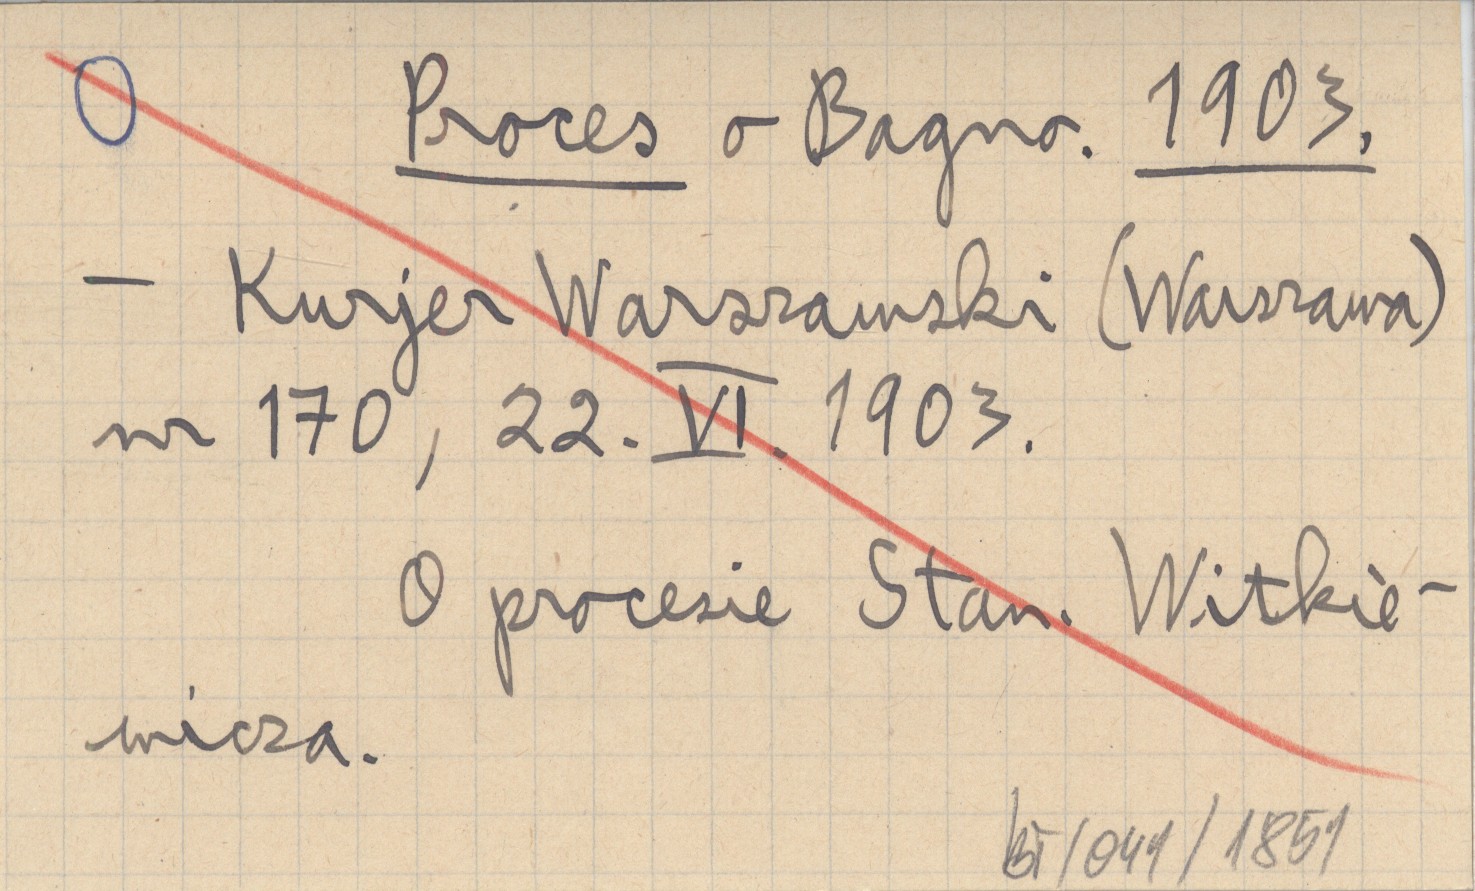 O Proces o Bagno. 1903.
— Kurjer Warszawski (Warszawa)
nr 170, 22. VI. 1903.
O procesie Stan. Witkie-
wicza.
/041/1851